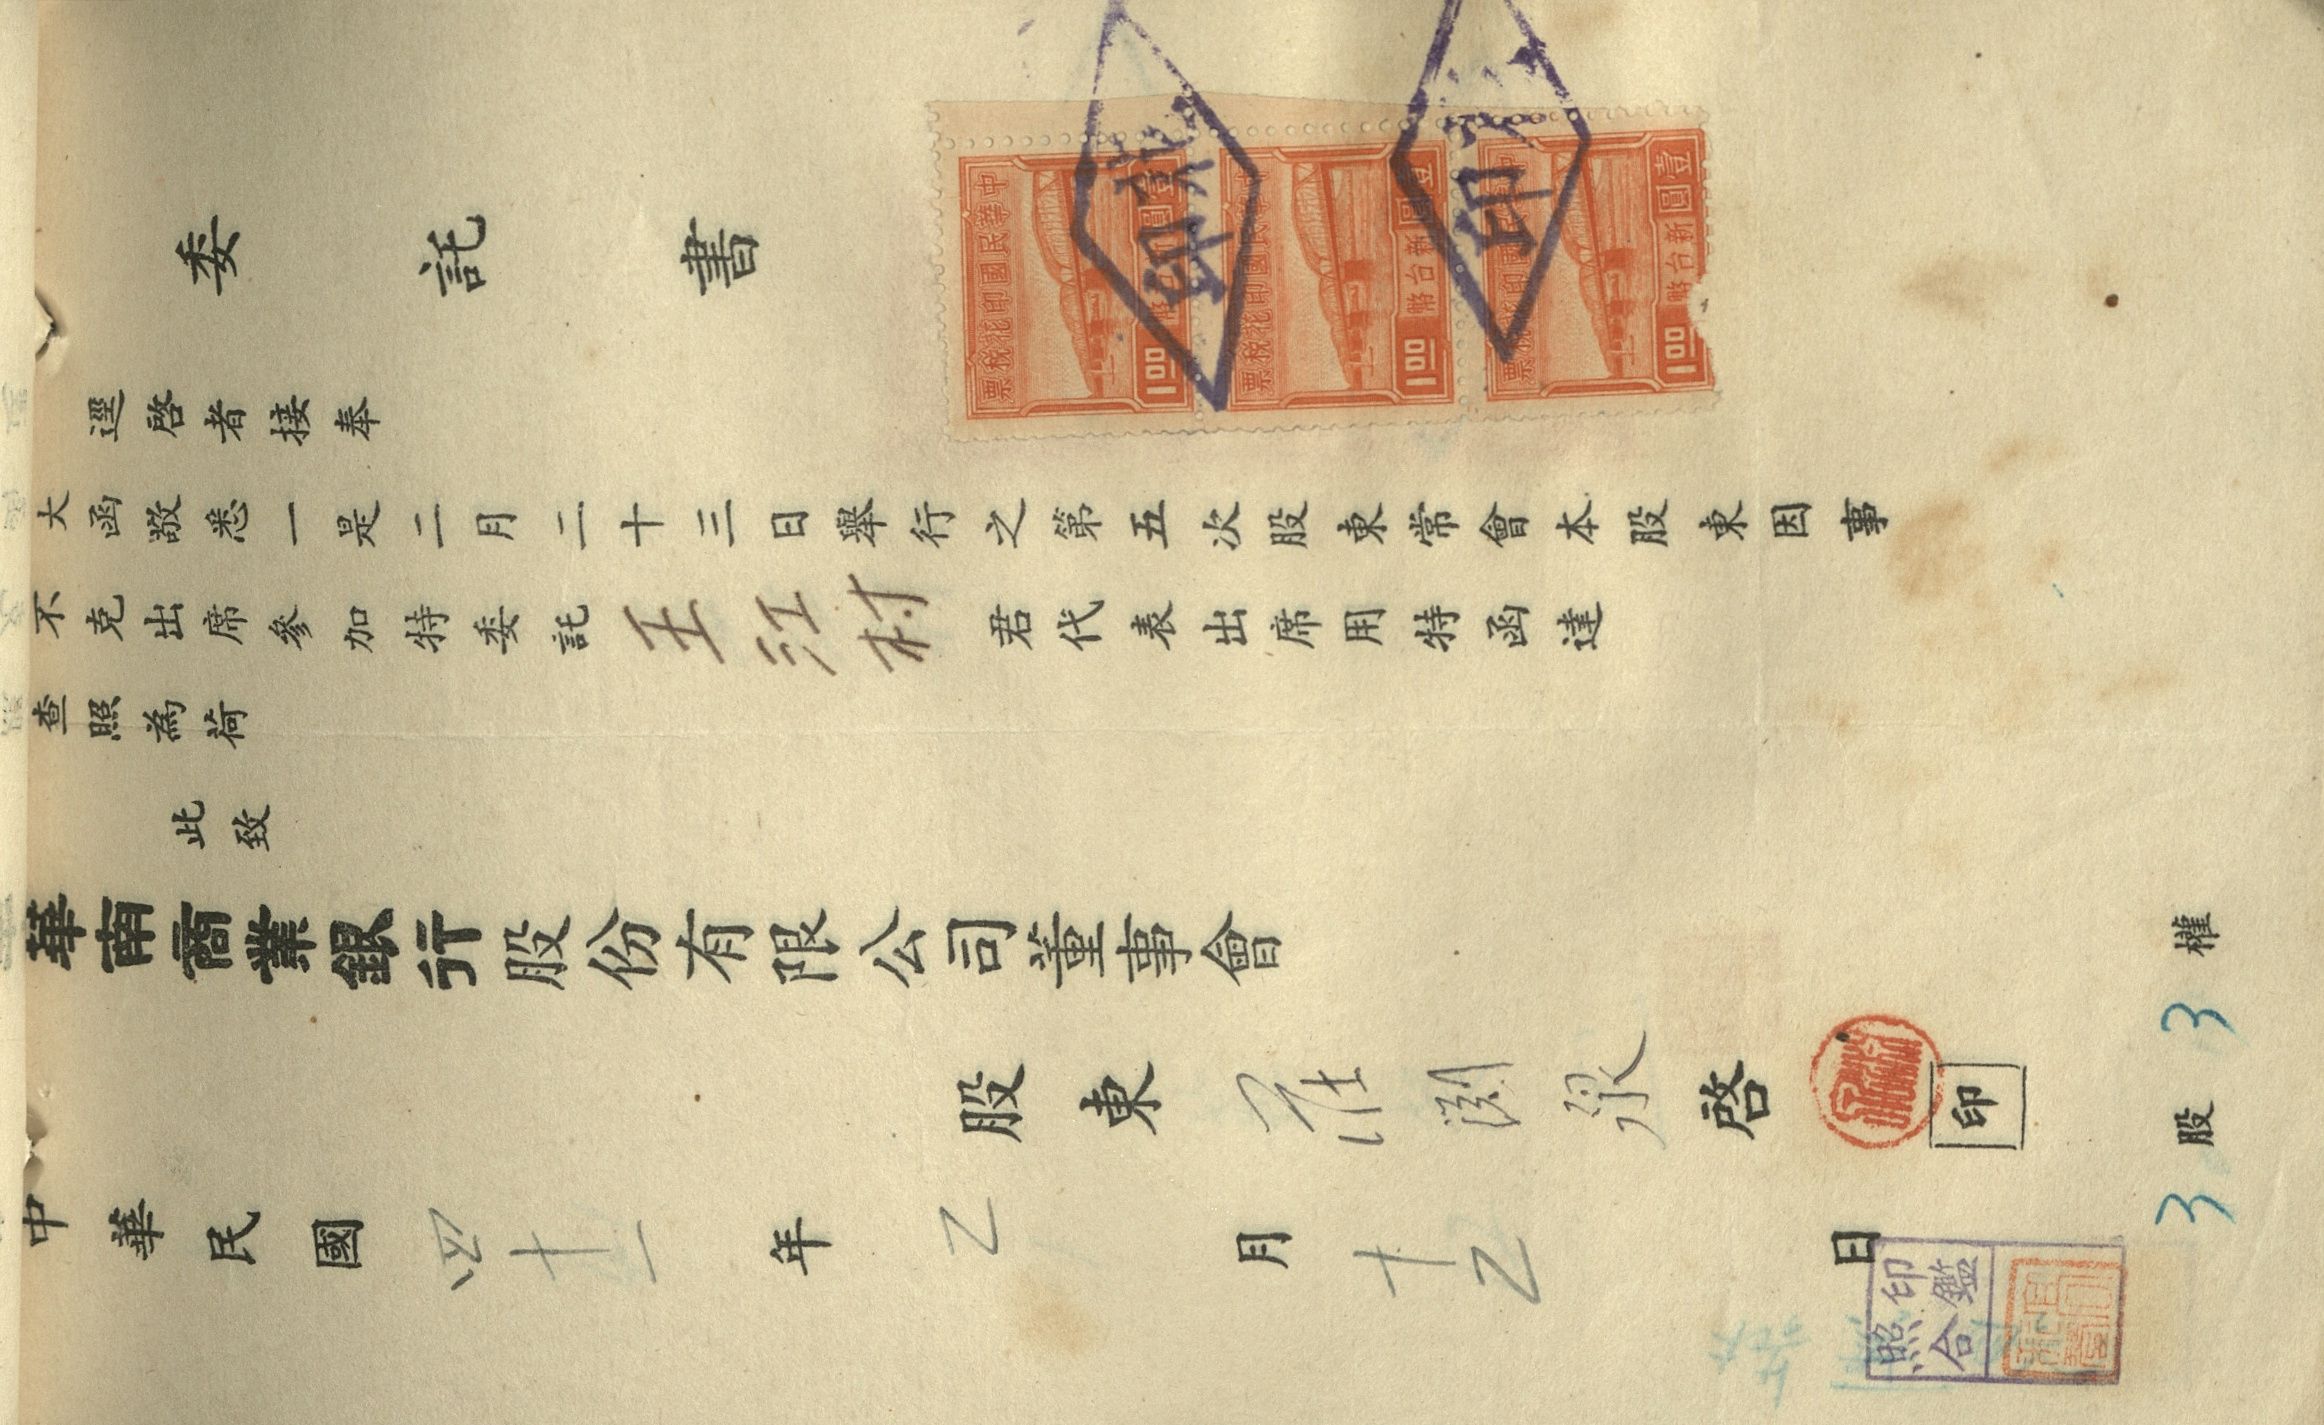 委託書
逕啓者接奉
大函敬悉一是二月二十三日舉行之第五次股東常會本股東因事
不克出席參加特委託王江村君代表出席用特函達
查照為荷
此致
華南商業銀行股份有限公司董事會
股東 啓
印
中華民國四十一年乙月十乙日
3股3權
印鑑
照合
中華民國印花稅票
壹圓
新台幣
1.00
中華民國印花稅票
壹圓
新台幣
1.00
中華民國印花稅票
壹圓
新台幣
1.00
印
印